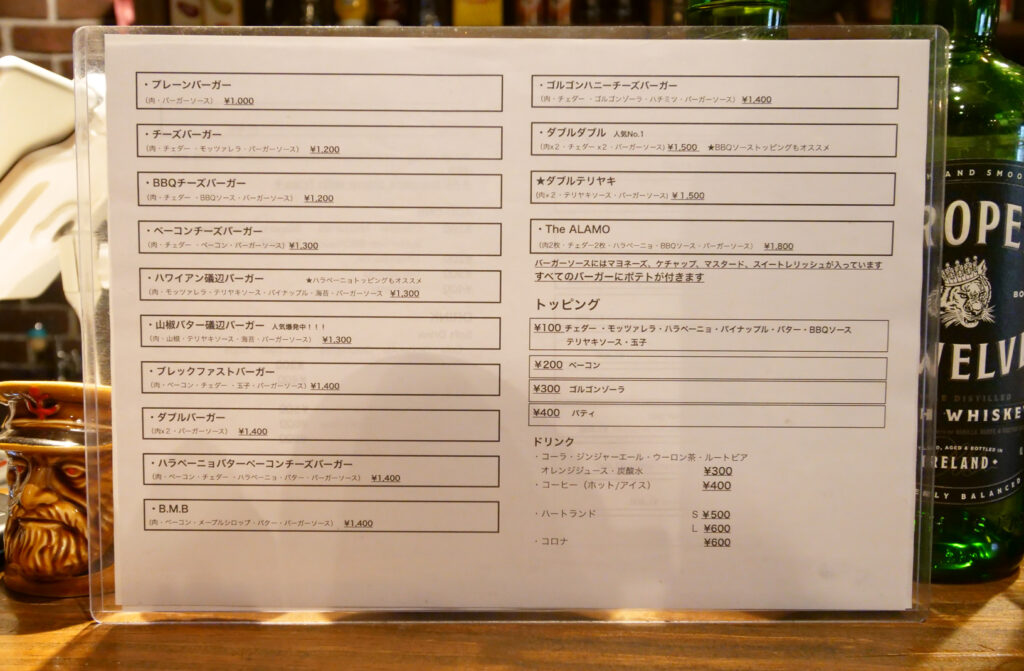 ・プレーンバーガー
(肉・バーガーソース) ¥1,000
・チーズバーガー
(肉・チェダー・モッツァレラ・バーガーソース) ¥1,200
・BBQチーズバーガー
(肉・チェダー・BBQソース・バーガーソース) ¥1,200
・ベーコンチーズバーガー
(肉・チェダー・ベーコン・バーガーソース) ¥1,300
・ハワイアン礒辺バーガー ★ハラペーニョトッピングもオススメ
(肉・モッツァレラ・テリヤキソース・パイナップル・海苔・バーガーソース ¥1,300
・山椒バター礒辺バーガー 人気爆発中！！！
(肉・山椒・テリヤキソース・海苔・バーガーソース) ¥1,300
・ブレックファストバーガー
(肉・ベーコン・チェダー・玉子・バーガーソース) ¥1,400
・ダブルバーガー
(肉x２・バーガーソース) ¥1,400
・ハラペーニョバターベーコンチーズバーガー
(肉・ベーコン・チェダー・ハラペーニョ・バター・バーガーソース) ¥1,400
・B.M.B
(肉・ベーコン・メープルシロップ・バター・バーガーソース) ¥1,400
・ゴルゴンハニーチーズバーガー
(肉・チェダー・ゴルゴンゾーラ・ハチミツ・バーガーソース) ¥1,400
・ダブルダブル 人気No.1
(肉x２・チェダーx２・バーガーソース) ¥1,500 ★BBQソーストッピングもオススメ
★ダブルテリヤキ
(肉x２・テリヤキソース・バーガーソース) ¥1,500
・The ALAMO
(肉2枚・チェダー2枚・ハラペーニョ・BBQソース・バーガーソース) ¥1,800
バーガーソースにはマヨネーズ、ケチャップ、マスタード、スイートレリッシュが入っています
すべてのバーガーにポテトが付きます
トッピング
¥100 チェダー・モッツァレラ・ハラペーニョ・パイナップル・バター・BBQソース
テリヤキソース・玉子
¥200 ベーコン
¥300 ゴルゴンゾーラ
¥400 パティ
ドリンク
・コーラ・ジンジャーエール・ウーロン茶・ルートビア
オレンジジュース・炭酸水 ¥300
・コーヒー（ホット/アイス） ¥400
・ハートランド S ¥500
L ¥600
・コロナ ¥600
AND SMOO
ROPE
WELVE
DISTILLED
WHISKEY
AGED & BOTTLED IN
IRELAND
BALANCED